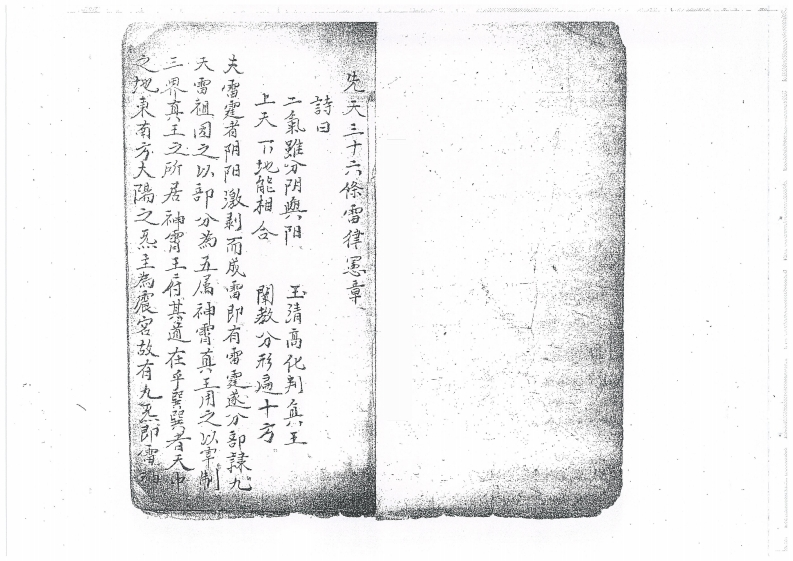 先天三十六條雷律憲章
詩曰
二氣雖分阴與阳 玉清高化判真王
上天下地能相合 闡教分形遍十方
夫雷霆者阴阳激剥而成雷即有雷霆遂分部隸九
天雷祖因之以部分為五属神霄真王用之以宰制
三界真王之所居神霄王府其道在乎巽巽者天中
之地東南方大陽之炁主為震宮故有九炁即雷